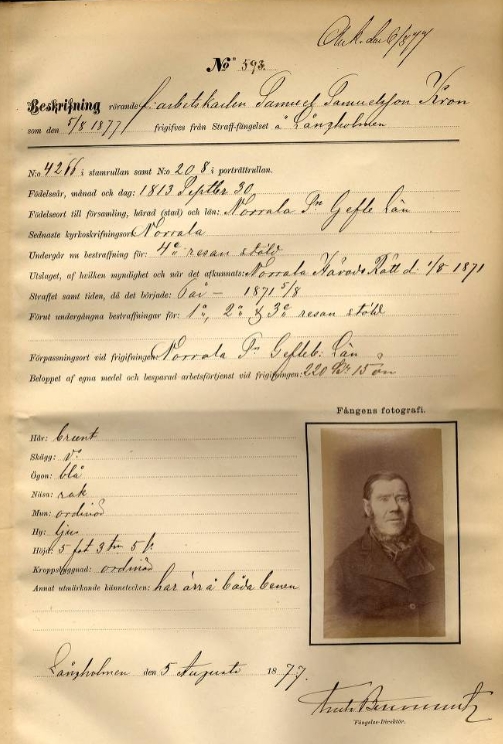 Ank. den 6/8 77
No 593.
Beskrifning rörande f. arbetskarlen Samuel Samuelsson Kron
som den 5/8 1877 frigifves från Straff-fängelset å Långholmen
N:o 4266 i stamrullan samt N:o 208 i porträttrullan.
Födelseår, månad och dag: 1813 Septber 30
Födelseort till församling, härad (stad) och län: Norrala Sn Gefle Län
Sednaste kyrkoskrifningsort: Norrala
Undergår nu bestraffning för: 4de resan stöld
Utslaget, af hvilken myndighet och när det afkunnats: Norrala Härads Rätt d. 1/8 1871
Straffet samt tiden, då det började: 6 år – 1871 5/8
Förut undergångna bestraffningar för: 1a, 2a & 3e resan stöld
Förpassningsort vid frigifningen: Norrala Sn Gefleb. Län
Beloppet af egna medel och besparad arbetsförtjenst vid frigifningen: 220 Kr 15 ön
Fångens fotografi.
Hår: brunt
Skägg: do
Ögon: blå
Näsa: rak
Mun: ordinär
Hy: ljus
Höjd: 5 fot 3 tm 5 l.
Kroppsbyggnad: ordinär
Annat utmärkande kännetecken: har ärr å båda benen
Långholmen den 5 Augusti 1877.
Fängelse-Direktör.